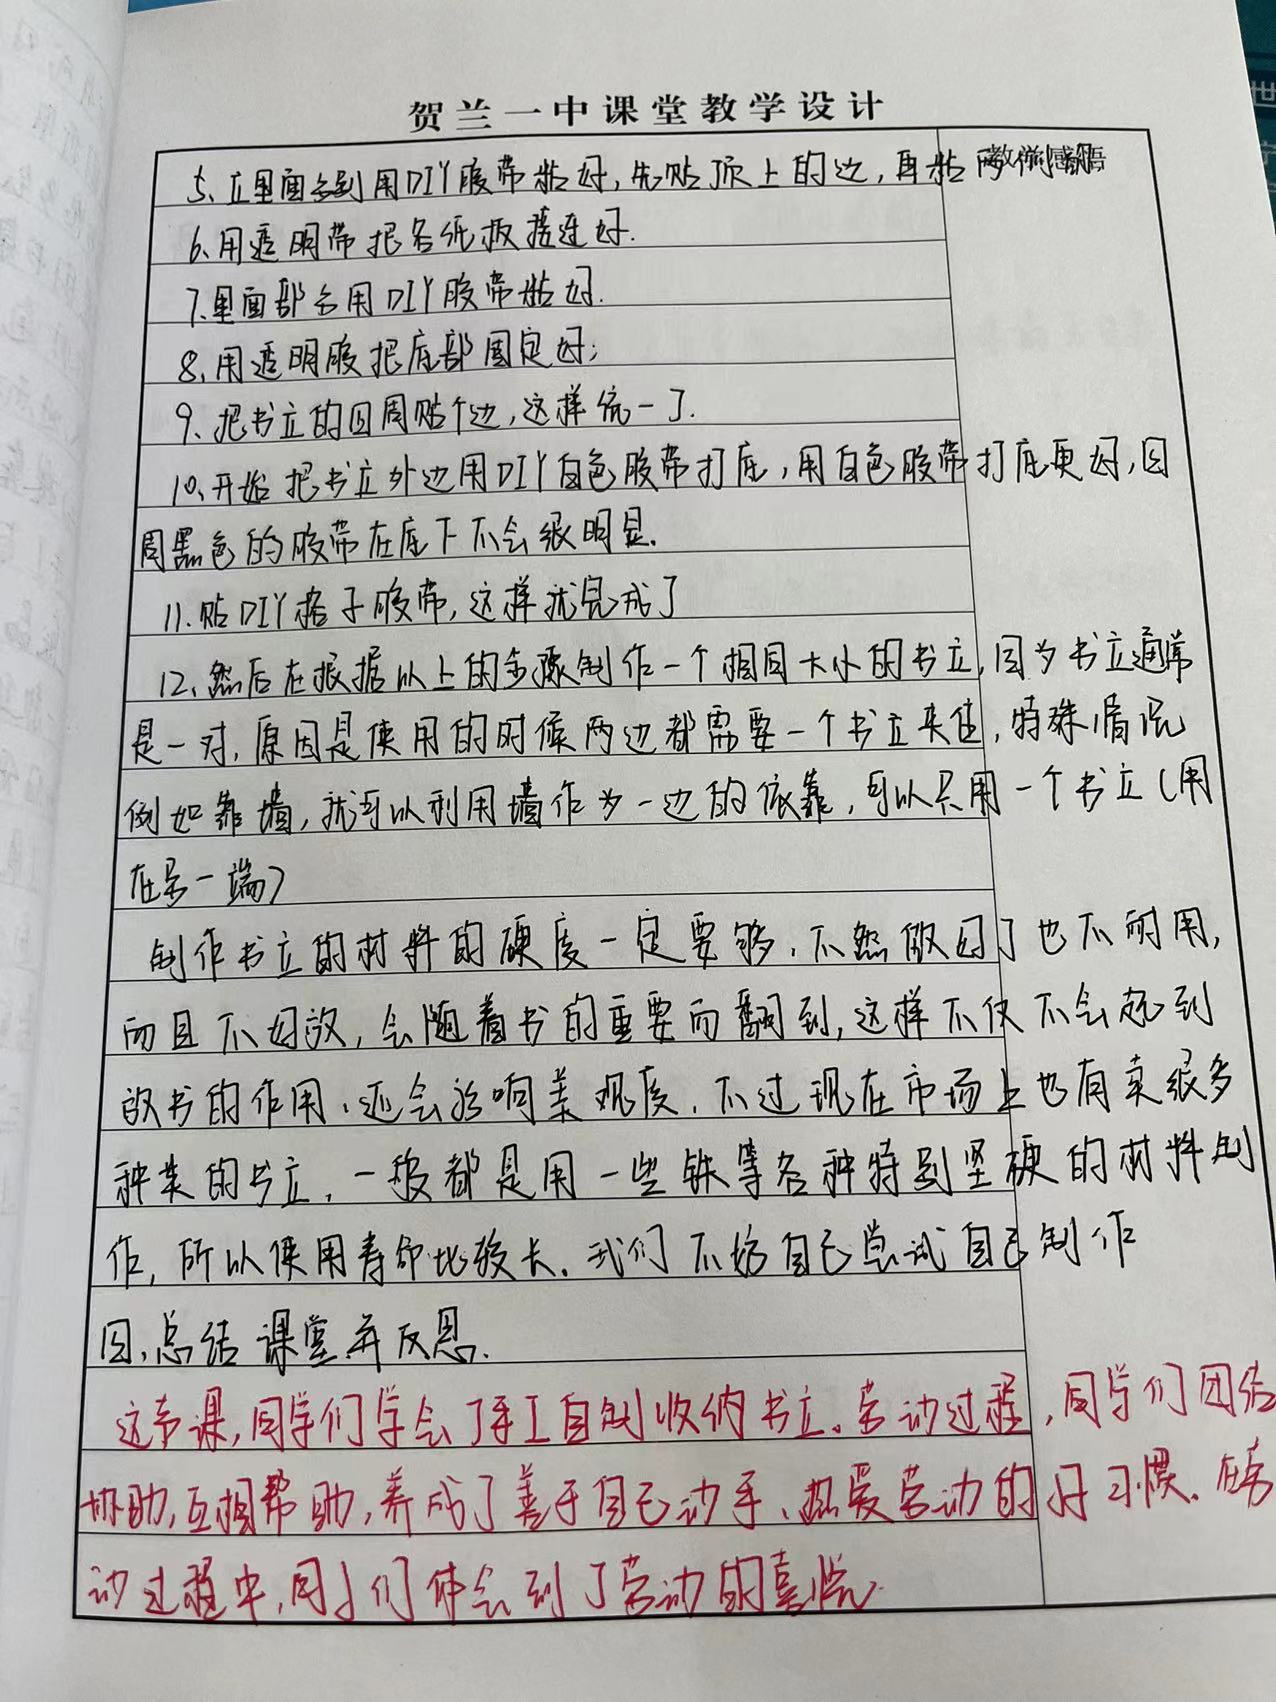 贺兰一中课堂教学设计
教学感悟
5、立里面分别用DIY胶带粘好,先贴顶上的边,再粘两侧
6、用透明带把各纸板接连好.
7.里面部分用DIY胶带粘好.
8、用透明胶把底部固定好;
9、把书立的四周贴个边,这样统一了.
10、开始把书立外边用DIY白色胶带打底,用白色胶带打底更好,四
周黑色的胶带在底下不会很明显.
11.贴DIY格子胶带,这样就完成了
12、然后在根据以上的步骤制作一个相同大小的书立,因为书立通常
是一对,原因是使用的时候两边都需要一个书立夹住,特殊情况
例如靠墙,就可以利用墙作为一边的依靠,可以只用一个书立(用
在另一端)
制作书立的材料的硬度一定要够.不然做好了也不耐用,
而且不好放,会随着书的重要而翻到,这样不仅不会起到
放书的作用.还会影响美观度.不过现在市场上也有卖很多
种类的书立,一般都是用一些铁等各种特别坚硬的材料制
作,所以使用寿命比较长.我们不妨自己尝试自己制作
四、总结课堂并反思.
这节课,同学们学会了手工自制收纳书立。劳动过程,同学们团结
协助,互相帮助,养成了善于自己动手、热爱劳动的好习惯.在劳
动过程中,同学们体会到了劳动的喜悦.